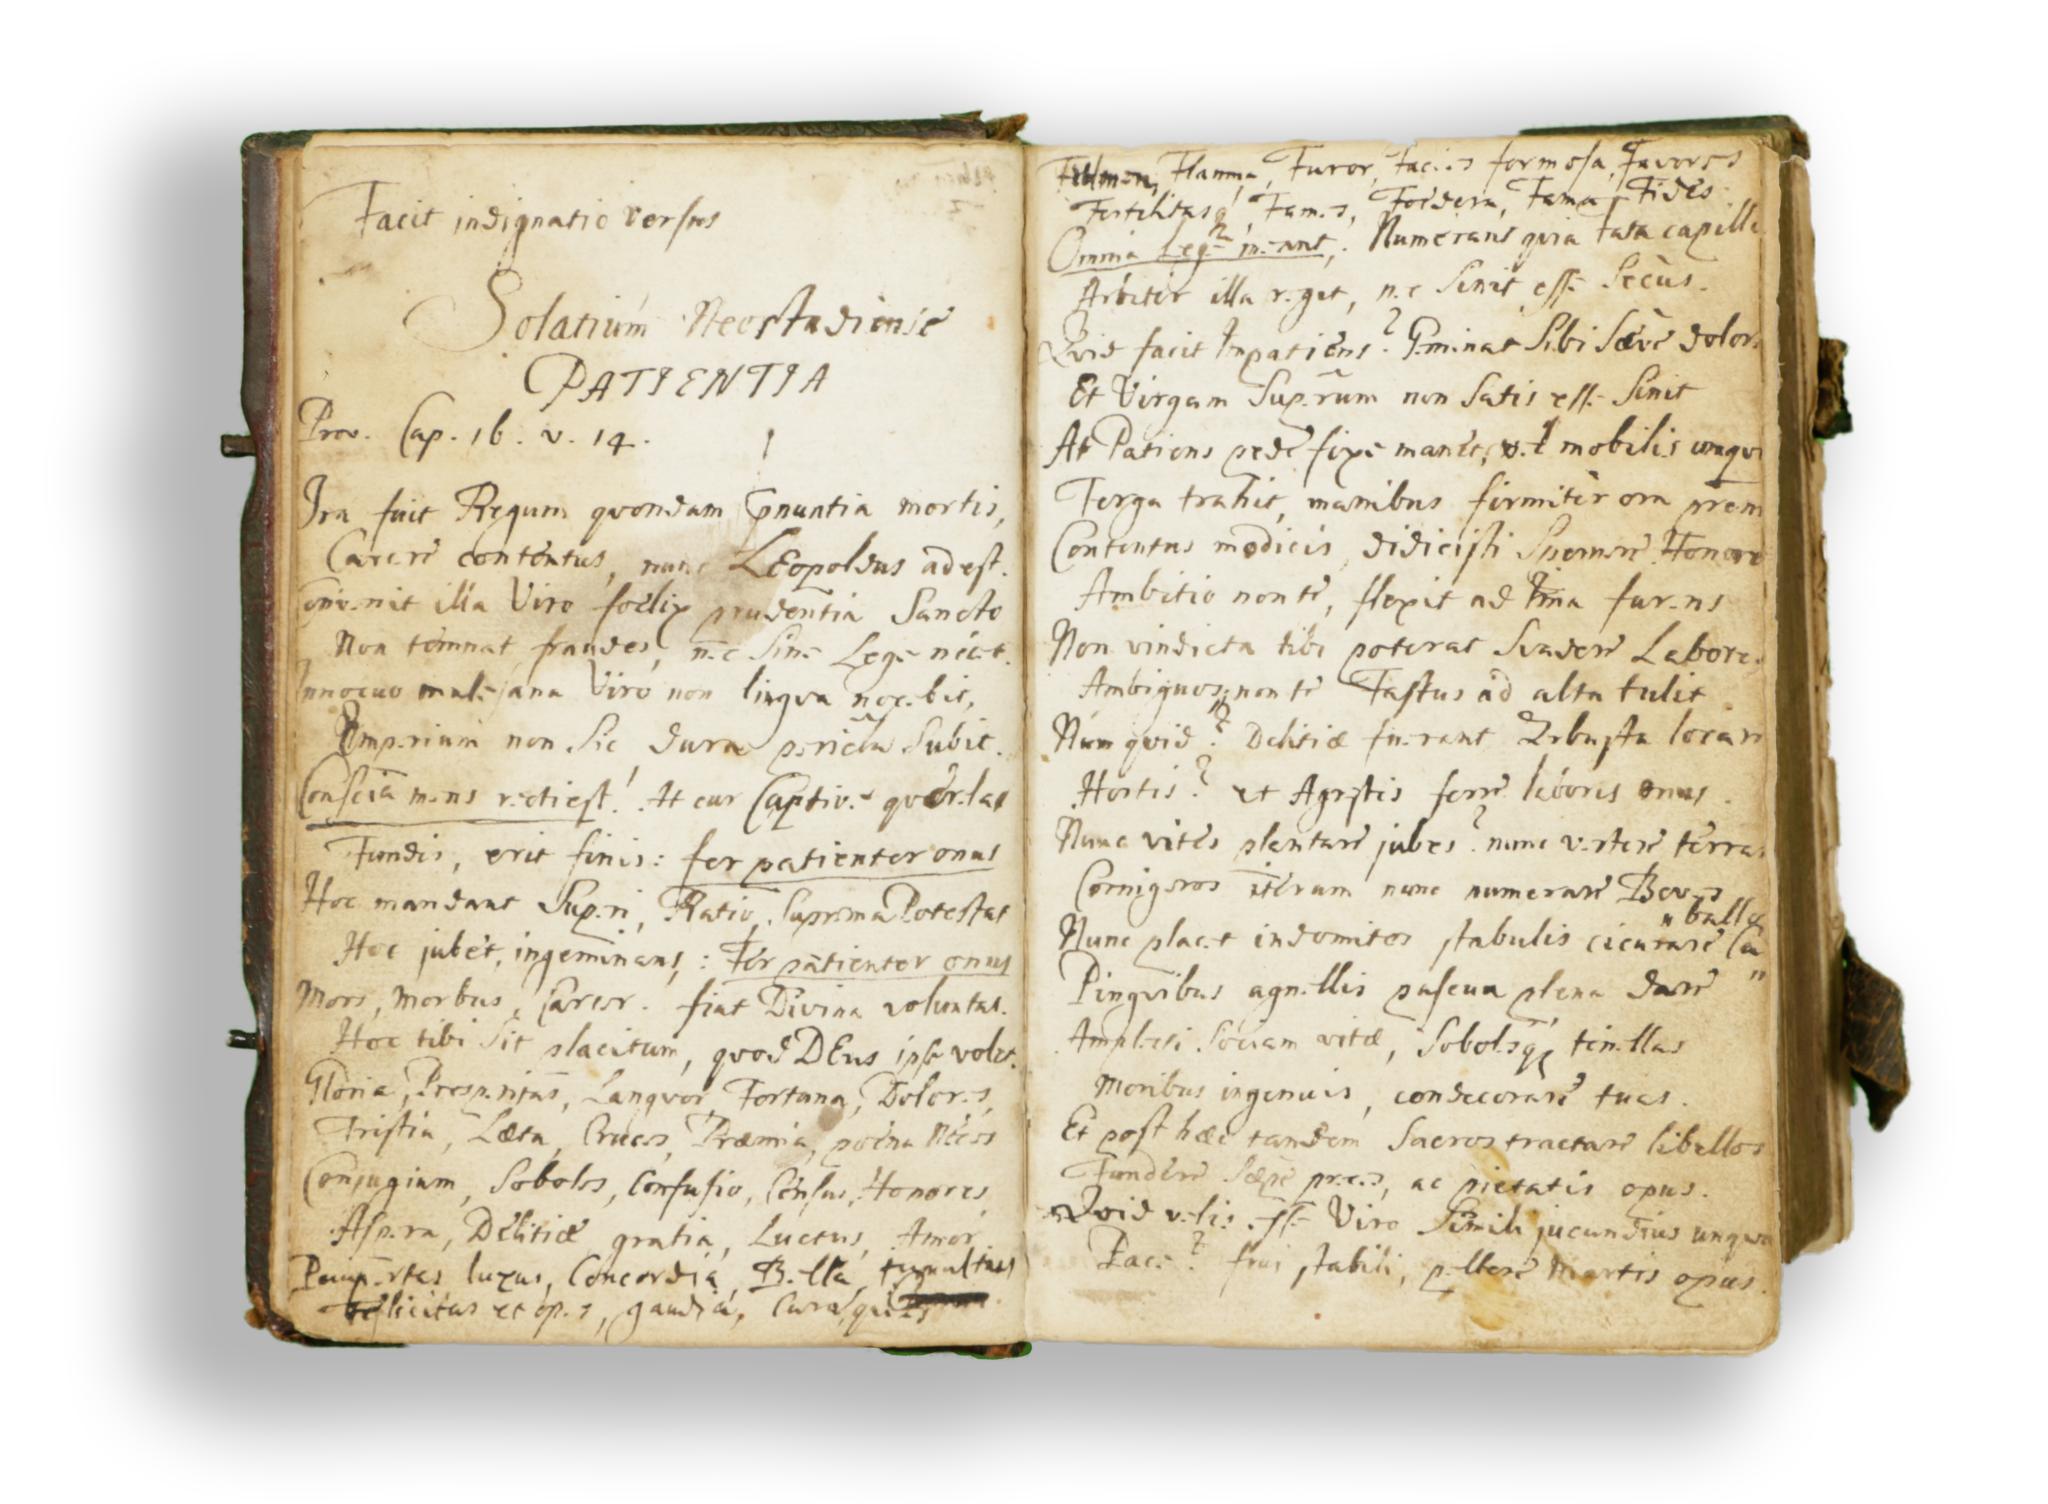 Facit indignatio versus
Solatium Neostadiense
PATIENTIA
Prov. Cap. 16. v. 14.
Ira fuit Regum quondam pnuntia mortis,
Carcere contentus, nunc LEopoldus adest.
Convenit illa Viro foelix prudentia Sancto
Non temnat fraudes, nec Sine Lege necet.
Innocuo malesana Viro non lingva nocebit,
Imperium non Sic dura pericla Subit.
Conscia mens recti est! At cur Captive querelas
Fundis, erit finis: fer patienter onus
Hoc mandant Superi, Ratio, Suprema Potestas
Hoc jubet, ingeminans,: Fer patienter onus
Mors, Morbus, Carcer. fiat Divina voluntas.
Hoc tibi Sit placitum, quod DEus ipse volet.
Gloria, Prosperitas, Langvor Fortuna, Dolores,
Tristia, Læta, Cruces, Præmia, poena Neces
Conjugium, Soboles, Confusio, Census, Honores,
Aspera, Delitiæ gratia, Luctus, Amor
Paupertas luxus, Concordia, Bella, tumultus
Felicitas et opes, gaudia, Cura,
Flamma, Furor, facies formosa, Favores
Fertilitasq, Fames, Foedera, Fama, Fides.
Omnia Lege meant,. Numerans quia fata capilli
Arbiter illa reget, nec Sinit esse Secus.
Qvid facit Impatiens? Geminat Sibi Sæve dolores
Et Virgam Superum non Satis esse Sinit
At Patiens pede fixe manet, vel mobilis unqva
Terga trahit, manibus firmiter ora prem
Contentus modicis, didicisti Spernere Honore
Ambitio non te, flexit ad ima furens
Non vindicta tibi poterat Svadere Labores
Ambiguos; non te Fastus ad alta tulit
Num qvid? Delitiæ fuerant Arbusta locare
Hortis? et Agrestis ferre laboris onus.
Nunc vites plantare jubes? nunc vertere terras
Cornigeros iterum nunc numerare Boves
Nunc placet indomitos stabulis cicurare Ca
"ballos
Pingvibus agnellis pascua plena dare "
Amplecti Sociam vitæ, Sobolesq, tenellas
Moribus ingenuis, condecorare tuas.
Et post hæc tandem Sacros tractare libellos
Fundere Sæpe preces, ac pietatis opus.
Qvid velis esse Viro Simili jucundius unqva
Pace? frui stabili, pellere Martis opus.